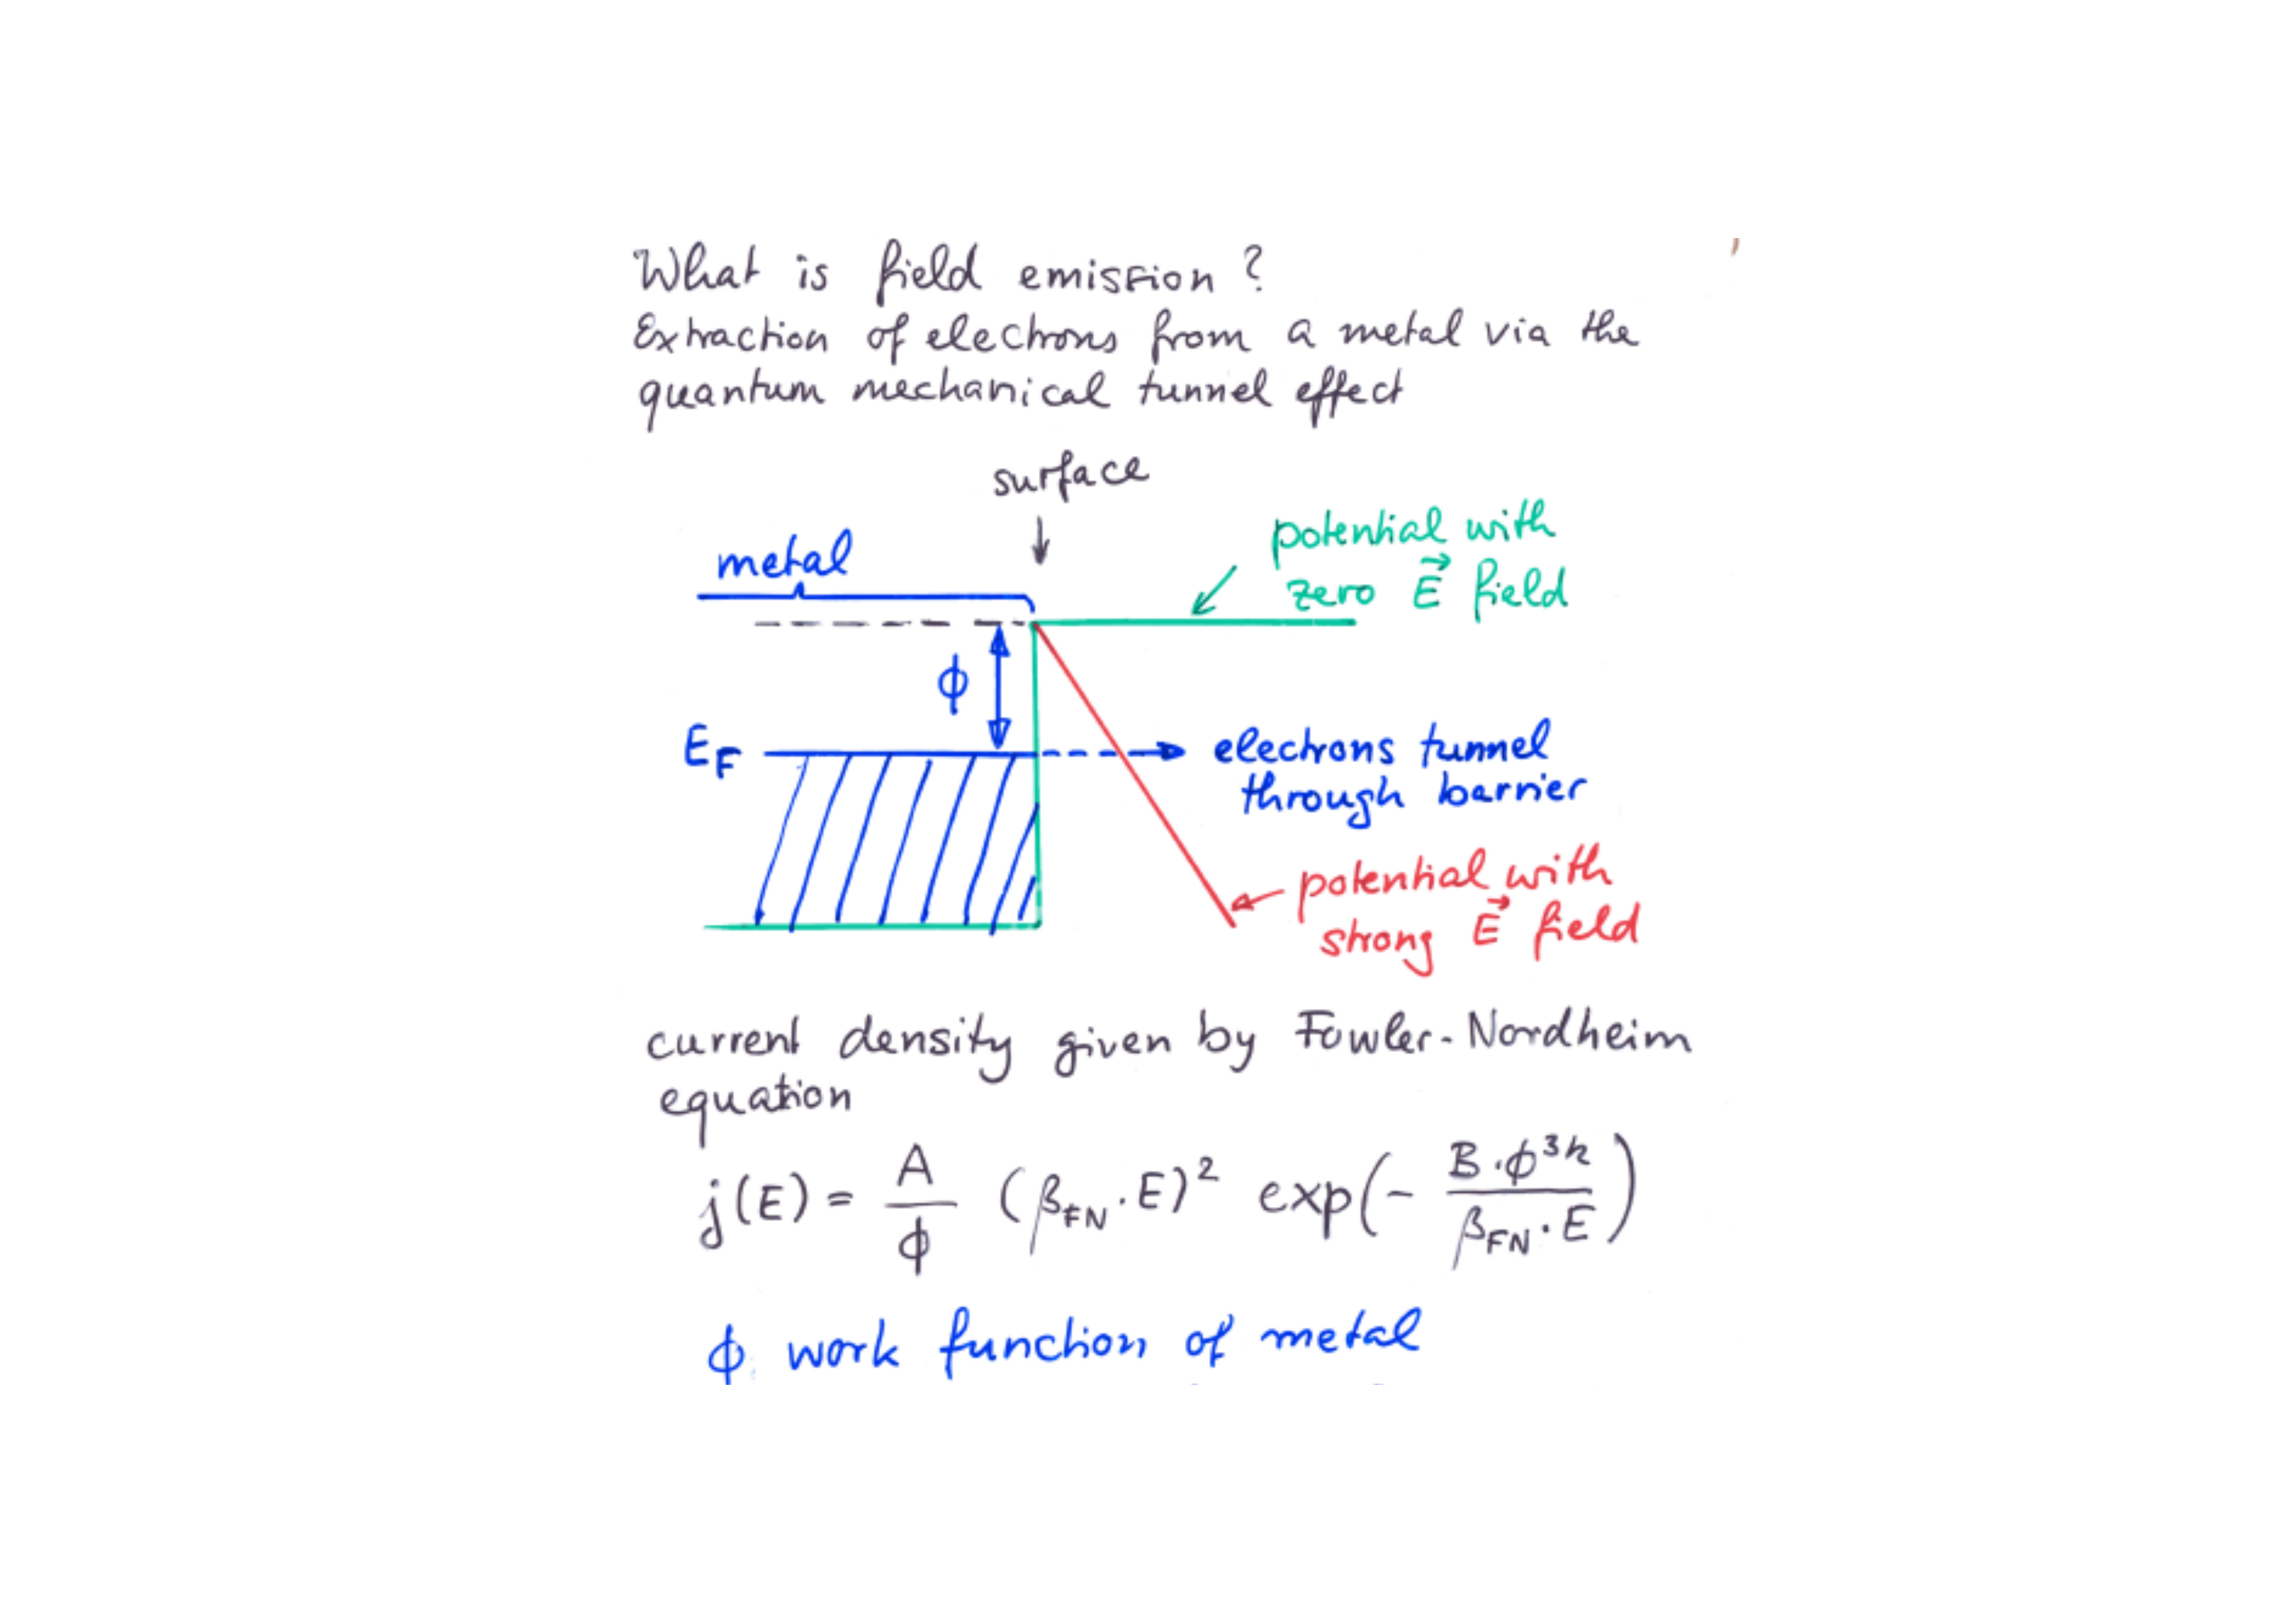 What is field emission ?
Extraction of electrons from a metal via the
quantum mechanical tunnel effect
surface
metal
potential with
zero E⃗ field
ϕ
E_F
electrons tunnel
through barrier
potential with
strong E⃗ field
current density given by Fowler-Nordheim
equation
j(E) = A/ϕ (β_FN · E)² exp(- B·ϕ^3/2 / β_FN · E)
ϕ: work function of metal